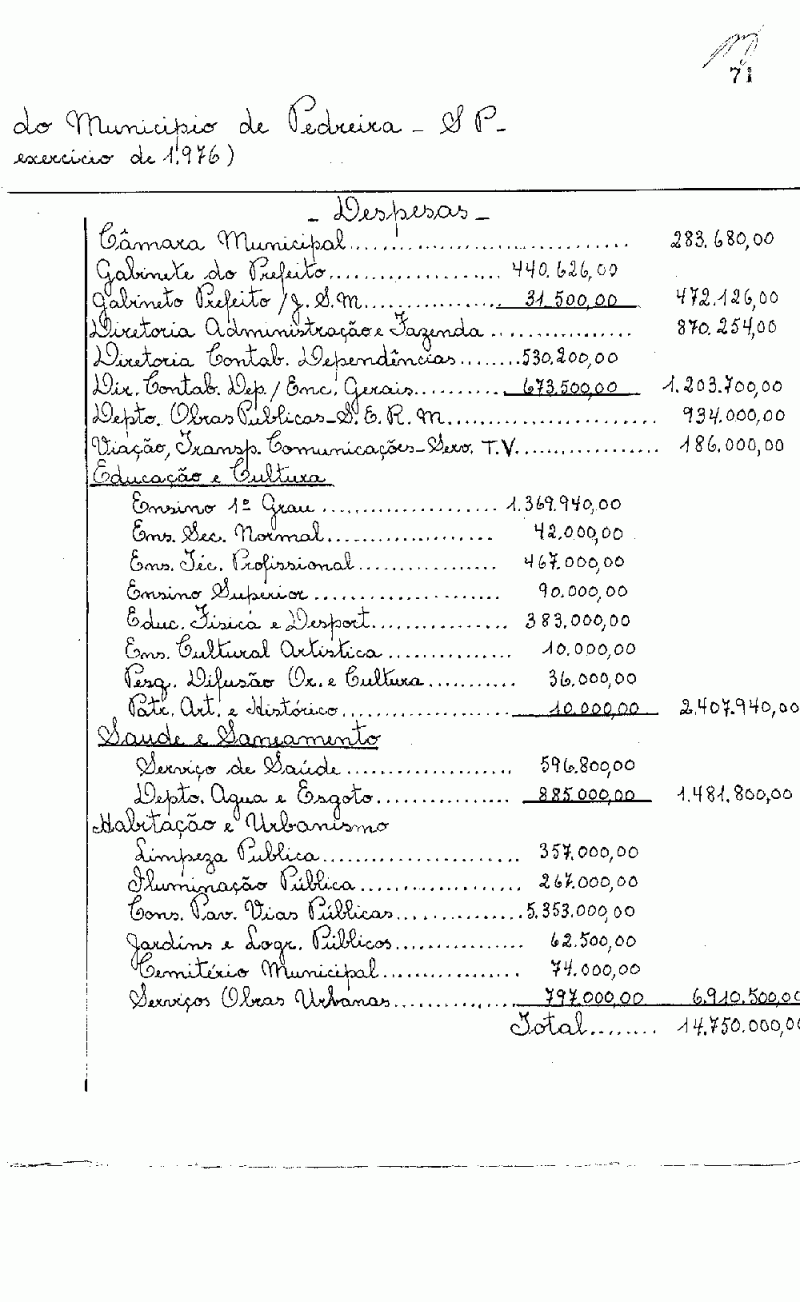 71
do Municipio de Pedreira - S P -
exercício de 1.976)
- Despesas -
Câmara Municipal.............................. 283.680,00
Gabinete do Prefeito.................... 440.626,00
Gabineto Prefeito / J. S. M................ 31.500,00 472.126,00
Diretoria Administração e Fazenda ................ 870.254,00
Diretoria Contab. Dependências........530.200,00
Dir. Contab. Dep. / Enc. Gerais........... 673.500,00 1.203.700,00
Depto. Obras Públicas - S. E. R. M........................ 934.000,00
Viação, Transp. Comunicações - Serv. T.V.................. 186.000,00
Educação e Cultura
Ensino 1º Grau ...................... 1.369.940,00
Ens. Sec. Normal.................... 42.000,00
Ens. Téc. Profissional................ 467.000,00
Ensino Superior...................... 90.000,00
Educ. Física e Desport................ 383.000,00
Ens. Cultural Artística................ 10.000,00
Pesq. Difusão Or. e Cultura........... 36.000,00
Patr. Art. e Histórico................... 10.000,00 2.407.940,00
Saude e Saneamento
Serviço de Saúde.................... 596.800,00
Depto. Agua e Esgoto................ 885.000,00 1.481.800,00
Habitação e Urbanismo
Limpeza Publica....................... 357.000,00
Iluminação Pública................... 267.000,00
Cons. Pav. Vias Públicas..............5.353.000,00
Jardins e Logr. Públicos............... 62.500,00
Cemitério Municipal................. 74.000,00
Serviços Obras Urbanas.............. 797.000,00 6.910.500,00
Total........ 14.750.000,00